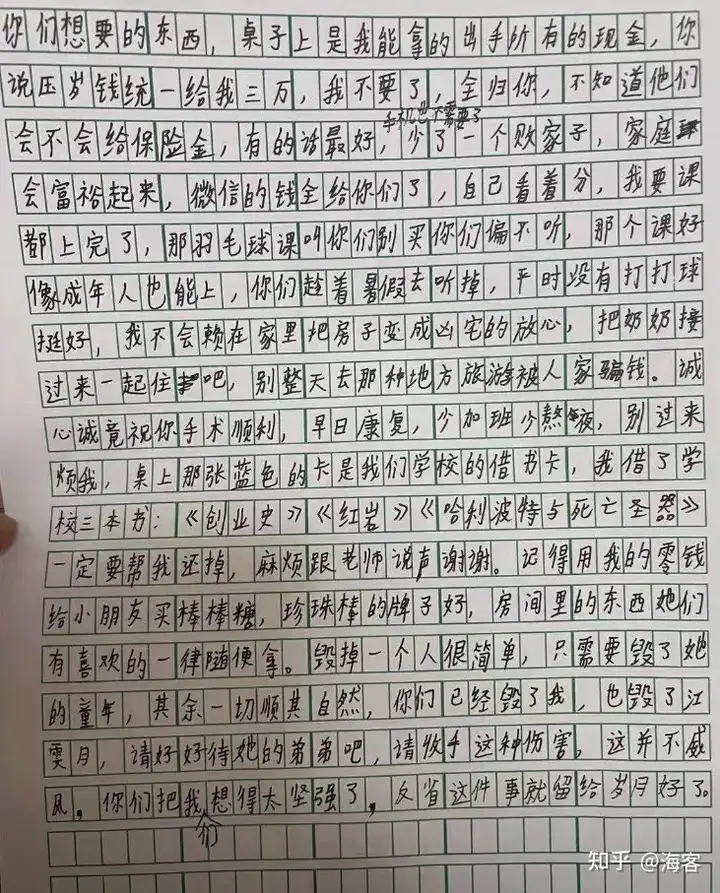 你们想要的东西，桌子上是我能拿的出手所有的现金，你
说压岁钱统一给我三万，我不要了，全归你，不知道他们
手机也不需要了
会不会给保险金，有的话最好，少了一个败家子，家庭
会富裕起来，微信的钱全给你们了，自己看着分，我要课
都上完了，那羽毛球课叫你们别买你们偏不听，那个课好
像成年人也能上，你们趁着暑假去听掉，平时没有打打球
挺好，我不会赖在家里把房子变成凶宅的放心，把奶奶接
过来一起住吧，别整天去那种地方旅游被人家骗钱。诚
心诚意祝你手术顺利，早日康复，少加班少熬夜，别过来
烦我，桌上那张蓝色的卡是我们学校的借书卡，我借了学
校三本书：《创业史》《红岩》《哈利波特与死亡圣器》
一定要帮我还掉，麻烦跟老师说声谢谢。记得用我的零钱
给小朋友买棒棒糖，珍珠棒的牌子好，房间里的东西她们
有喜欢的一律随便拿。毁掉一个人很简单，只需要毁了她
的童年，其余一切顺其自然，你们已经毁了我，也毁了江
雯月，请好好待她的弟弟吧，请收手这种伤害，这并不威
风。你们把我们想得太坚强了，反省这件事就留给岁月好了。
知乎 @海客